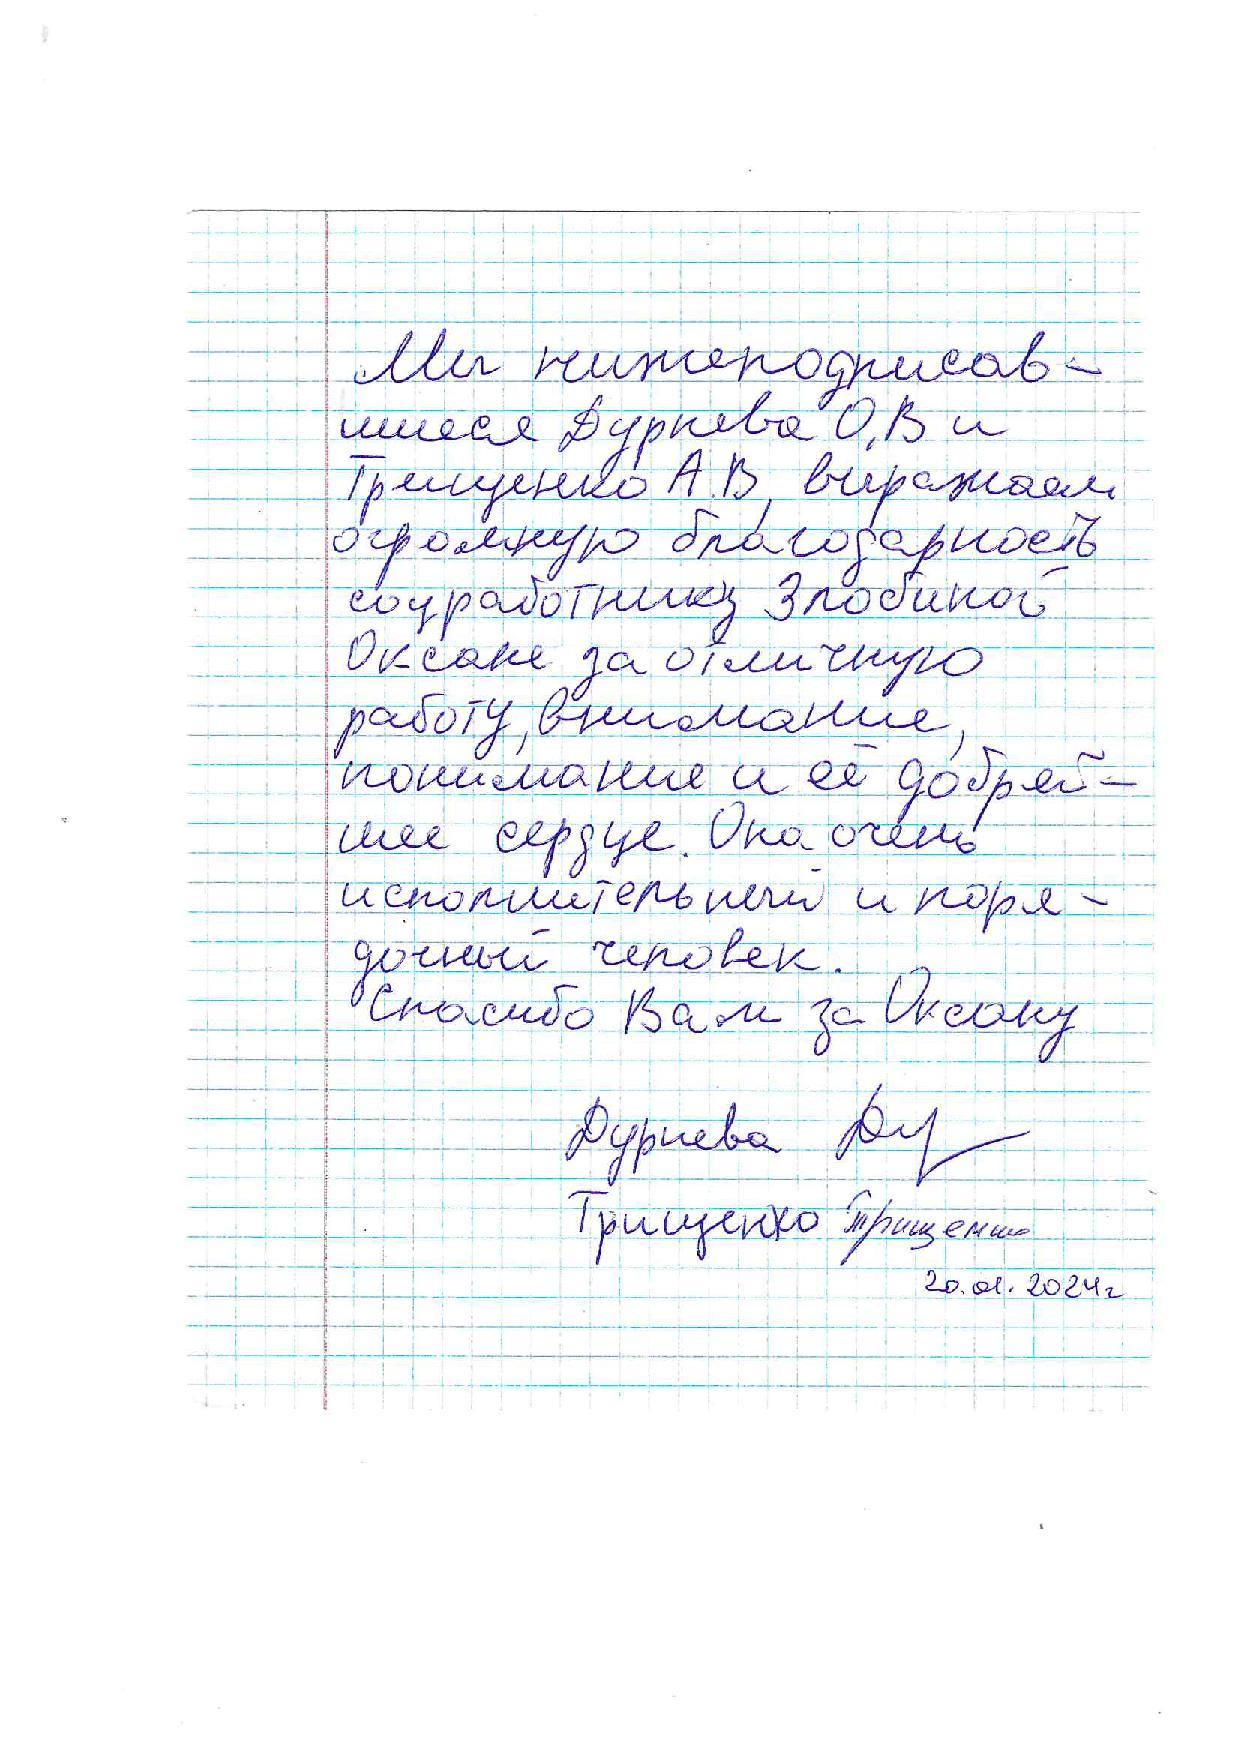 Мы нижеподписав-
шиеся Дурнева О.В и
Трищенко А.В, выражаем
огромную благодарность
соцработнику Злобиной
Оксане за отличную
работу, внимание,
понимание и её добрей-
шее сердце. Она очень
исполнительный и поря-
дочный человек.
Спасибо Вам за Оксану
Дурнева
Трищенко Трищенко
20.01.2024г